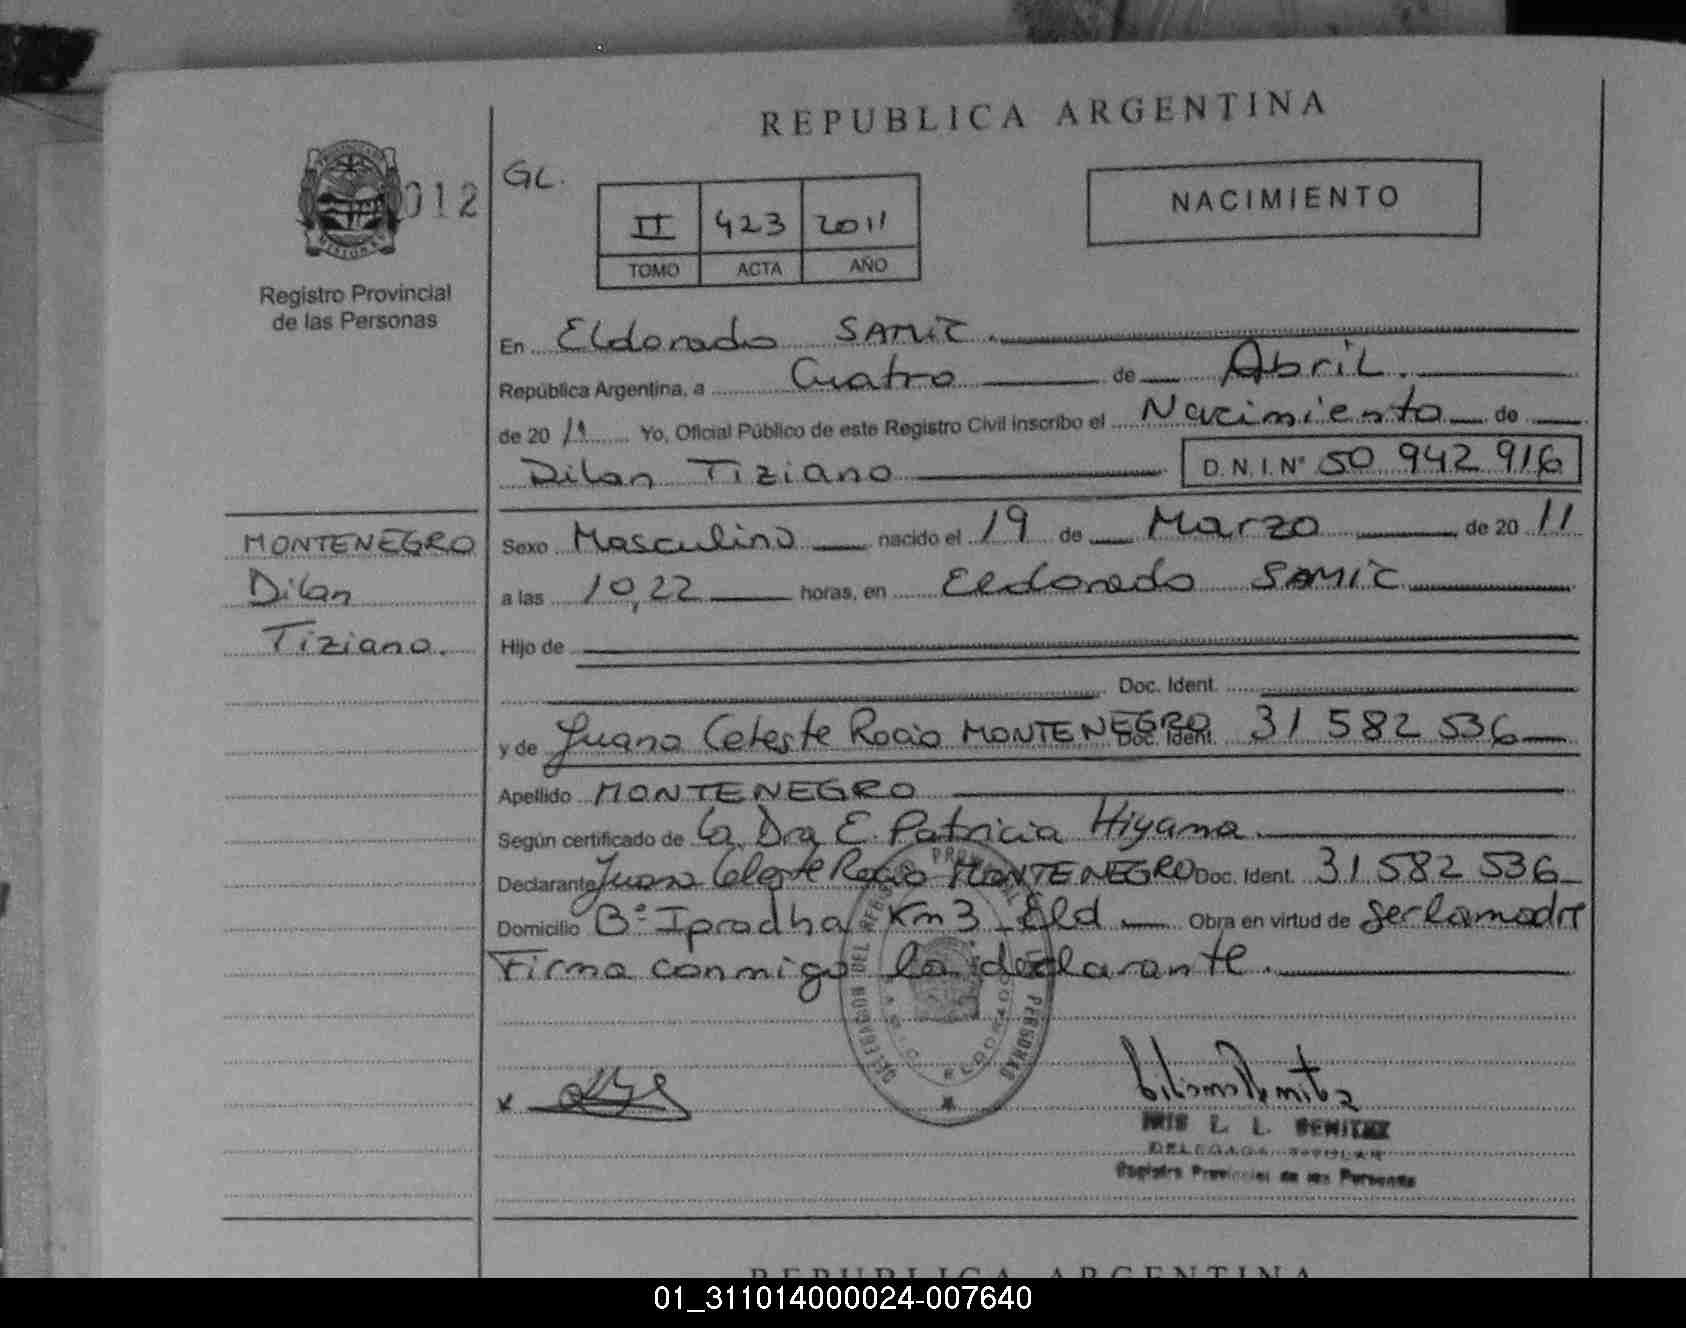 REPUBLICA ARGENTINA
012
GL.
NACIMIENTO
II 423 2011
TOMO ACTA AÑO
Registro Provincial
de las Personas
En Eldorado SAMIC.
República Argentina, a Cuatro de Abril.
de 20 11 Yo, Oficial Público de este Registro Civil inscribo el Nacimiento de
Dilan Tiziano D.N.I.Nº 50 942 916
MONTENEGRO
Dilan
Tiziano.
Sexo Masculino nacido el 19 de Marzo de 20 11
a las 10,22 horas, en Eldorado SAMIC
Hijo de
Doc. Ident.
y de Juana Celeste Rocio MONTENEGRO Doc. Ident. 31 582 536
Apellido MONTENEGRO
Según certificado de la Dra E. Patricia Hiyama.
Declarante Juana Celeste Rocio MONTENEGRO Doc. Ident. 31 582 536
Domicilio Bº Ipradha Km 3 Eld Obra en virtud de ser la madre
Firma conmigo la declarante.
DELEGACION DEL REGISTRO PROVINCIAL DE LAS PERSONAS
ELDORADO
IRIS L. L. BENITEZ
DELEGADA TITULAR
Registro Provincial de las Personas
REPUBLICA ARGENTINA
01_311014000024-007640